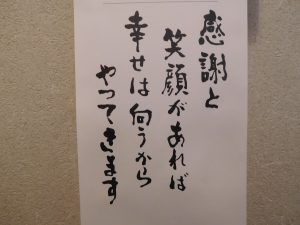 感謝と
笑顔があれば
幸せは向うから
やってきます